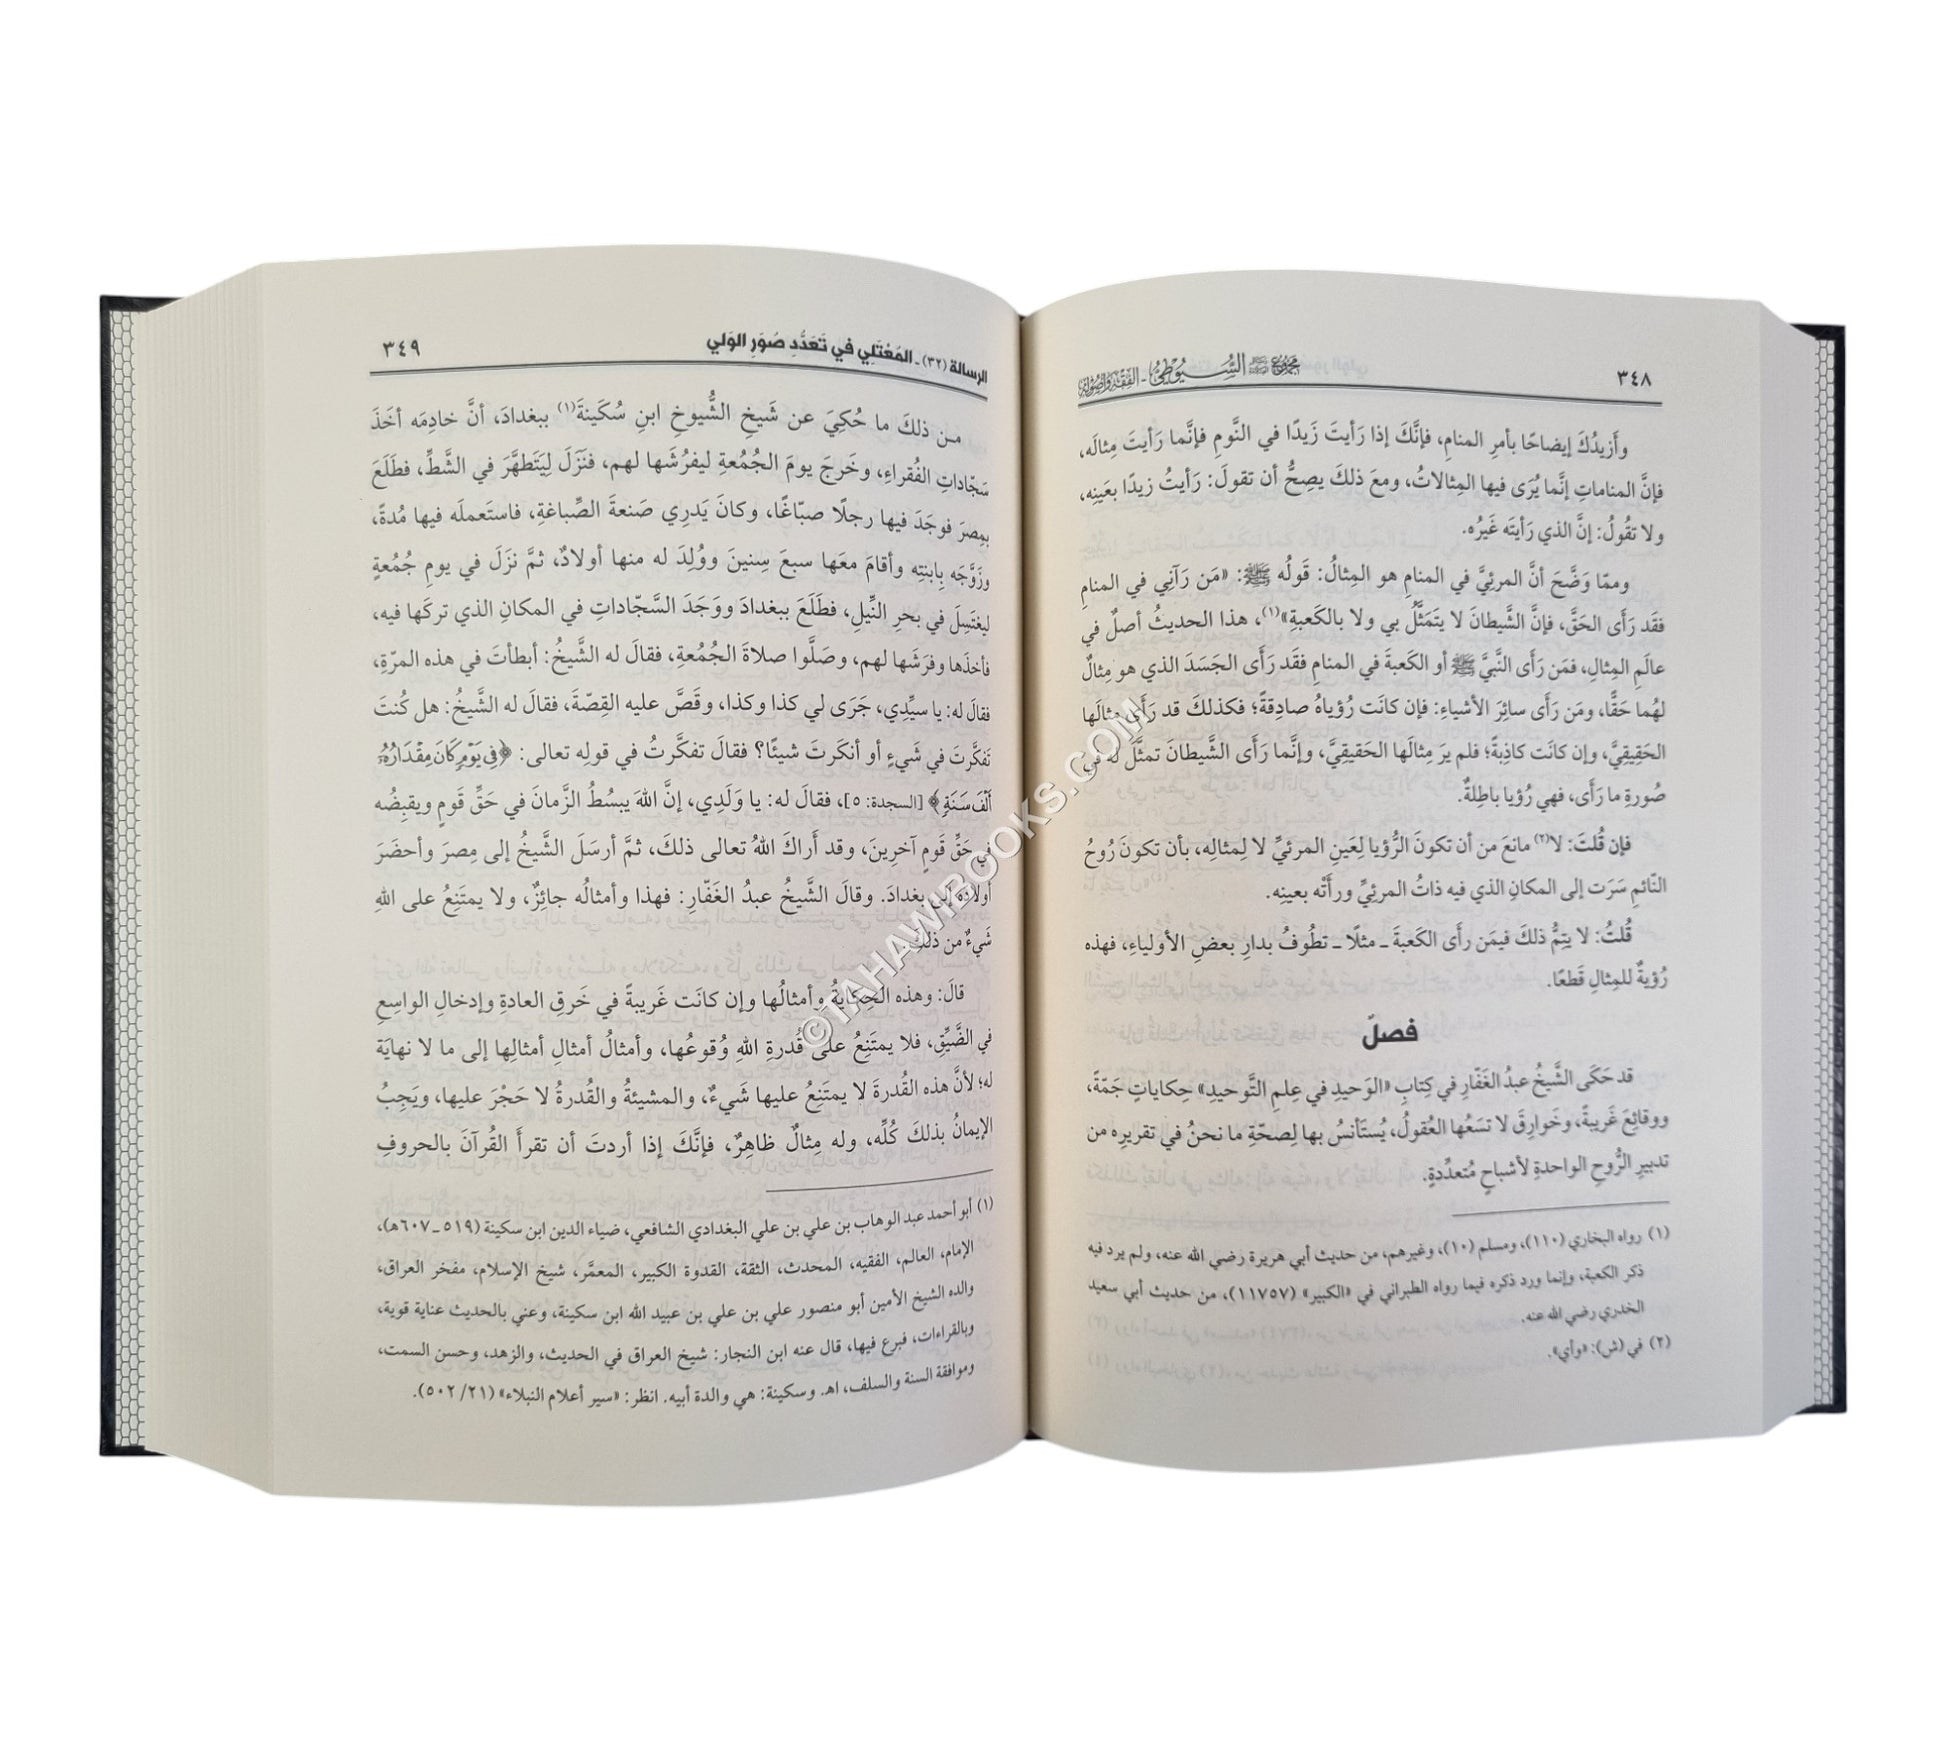 ٣٤٨
مجموع السيوطي - الفقه وأصوله
وأَزيدُكَ إيضاحًا بأمرِ المنامِ، فإنَّكَ إذا رَأيتَ زَيدًا في النَّومِ فإنَّما رَأيتَ مِثالَه،
فإنَّ المناماتِ إنَّما يُرَى فيها المِثالاتُ، ومعَ ذلكَ يصِحُّ أن تقولَ: رَأيتُ زيدًا بعَينِه،
ولا تقُولُ: إنَّ الذي رَأيتَه غَيرُه.
وممّا وَضَّحَ أنَّ المرئِيَّ في المنامِ هو المِثالُ: قَولُه ﷺ: «مَن رَآنِي في المنامِ
فقَد رَأَى الحَقَّ، فإنَّ الشَّيطانَ لا يتَمَثَّلُ بي ولا بالكَعبةِ»(١)، هذا الحديثُ أصلٌ في
عالَمِ المِثالِ، فمَن رَأَى النَّبيَّ ﷺ أو الكَعبةَ في المنامِ فقَد رَأَى الجَسَدَ الذي هو مِثالٌ
لهُما حَقًّا، ومَن رَأَى سائِرَ الأشياءِ: فإن كانَت رُؤياهُ صادِقةً؛ فكذلكَ قد رَأَى مِثالَها
الحَقِيقِيَّ، وإن كانَت كاذِبةً؛ فلم يرَ مِثالَها الحقيقِيَّ، وإنَّما رَأَى الشَّيطانَ تمثَّلَ له في
صُورةِ ما رَأَى، فهي رُؤيا باطِلةٌ.
فإن قُلتَ: لا(٢) مانعَ من أن تكونَ الرُّؤيا لِعَينِ المرئيِّ لا لِمثالِه، بأن تكونَ رُوحُ
النّائمِ سَرَت إلى المكانِ الذي فيه ذاتُ المرئيِّ ورأَتْه بعينِه.
قُلتُ: لا يتِمُّ ذلكَ فيمَن رأَى الكَعبةَ ـ مثلًا ـ تطُوفُ بدارِ بعضِ الأولياءِ، فهذه
رُؤيةٌ للمِثالِ قَطعًا.
فصلٌ
قد حَكَى الشَّيخُ عبدُ الغَفّارِ في كِتابِ «الوَحيدِ في عِلمِ التَّوحيدِ» حِكاياتٍ جَمّةً،
ووقائِعَ غَريبةً، وخَوارِقَ لا تسَعُها العُقولُ، يُستَأنسُ بها لِصحّةِ ما نحنُ في تقريرِه من
تدبيرِ الرُّوحِ الواحدةِ لأشباحٍ مُتعدِّدةٍ.
(١) رواه البخاري (١١٠)، ومسلم (١٠)، وغيرهم، من حديث أبي هريرة رضي الله عنه، ولم يرد فيه
ذكر الكعبة، وإنما ورد ذكره فيما رواه الطبراني في «الكبير» (١١٧٥٧)، من حديث أبي سعيد
الخدري رضي الله عنه.
(٢) في (ش): «وأي».
الرسالة (٣٢) ـ المُعْتَلِي في تَعَدُّدِ صُوَرِ الوَلي
٣٤٩
من ذلكَ ما حُكِيَ عن شَيخِ الشُّيوخِ ابنِ سُكَينةَ(١) ببغدادَ، أنَّ خادِمَه أخَذَ
سَجّاداتِ الفُقراءِ، وخَرجَ يومَ الجُمُعةِ ليفرُشَها لهم، فنَزَلَ لِيَتَطهَّرَ في الشَّطِّ، فطَلَعَ
بمِصرَ فوجَدَ فيها رجلًا صبّاغًا، وكانَ يَدرِي صَنعةَ الصِّباغةِ، فاستَعملَه فيها مُدةً،
وزَوَّجَه بِابنتِه وأقامَ معَها سبعَ سِنينَ ووُلِدَ له منها أولادٌ، ثمَّ نزَلَ في يومِ جُمُعةٍ
ليغتَسِلَ في بحرِ النِّيلِ، فطَلَعَ ببغدادَ ووَجَدَ السَّجّاداتِ في المكانِ الذي تركَها فيه،
فأخذَها وفرَشَها لهم، وصَلَّوا صلاةَ الجُمُعةِ، فقالَ له الشَّيخُ: أبطأتَ في هذه المرّةِ،
فقالَ له: يا سيِّدِي، جَرَى لي كذا وكذا، وقَصَّ عليه القِصّةَ، فقالَ له الشَّيخُ: هل كُنتَ
تفكَّرتَ في شَيءٍ أو أنكَرتَ شيئًا؟ فقالَ تفكَّرتُ في قولِه تعالى: ﴿فِي يَوْمٍ كَانَ مِقْدَارُهُ
أَلْفَ سَنَةٍ﴾ [السجدة: ٥]، فقالَ له: يا وَلَدِي، إنَّ اللهَ يبسُطُ الزَّمانَ في حَقِّ قَومٍ ويقبِضُه
في حَقِّ قَومٍ آخرِينَ، وقد أَراكَ اللهُ تعالى ذلكَ، ثمَّ أرسَلَ الشَّيخُ إلى مِصرَ وأحضَرَ
أولادَه إلى بغدادَ. وقالَ الشَّيخُ عبدُ الغَفّارِ: فهذا وأمثالُه جائِزٌ، ولا يمتَنِعُ على اللهِ
شَيءٌ من ذلكَ.
قالَ: وهذه الحِكايةُ وأمثالُها وإن كانَت غَريبةً في خَرقِ العادةِ وإدخالِ الواسِعِ
في الضَّيِّقِ، فلا يمتَنِعُ على قُدرةِ اللهِ وُقوعُها، وأمثالُ أمثالِ أمثالِها إلى ما لا نهايَة
له؛ لأنَّ هذه القُدرةَ لا يمتَنِعُ عليها شَيءٌ، والمشيئةُ والقُدرةُ لا حَجْرَ عليها، ويَجِبُ
الإيمانُ بذلكَ كُلِّه، وله مِثالٌ ظاهِرٌ، فإنَّكَ إذا أردتَ أن تقرأَ القُرآنَ بالحروفِ
(١) أبو أحمد عبد الوهاب بن علي بن علي البغدادي الشافعي، ضياء الدين ابن سكينة (٥١٩ـ٦٠٧هـ)،
الإمام، العالم، الفقيه، المحدث، الثقة، القدوة الكبير، المعمَّر، شيخ الإسلام، مفخر العراق،
والده الشيخ الأمين أبو منصور علي بن علي بن عبيد الله ابن سكينة، وعني بالحديث عناية قوية،
وبالقراءات، فبرع فيها، قال عنه ابن النجار: شيخ العراق في الحديث، والزهد، وحسن السمت،
وموافقة السنة والسلف، اهـ. وسكينة: هي والدة أبيه. انظر: «سير أعلام النبلاء» (٢١/ ٥٠٢).
©TAHAWIBOOKS.COM